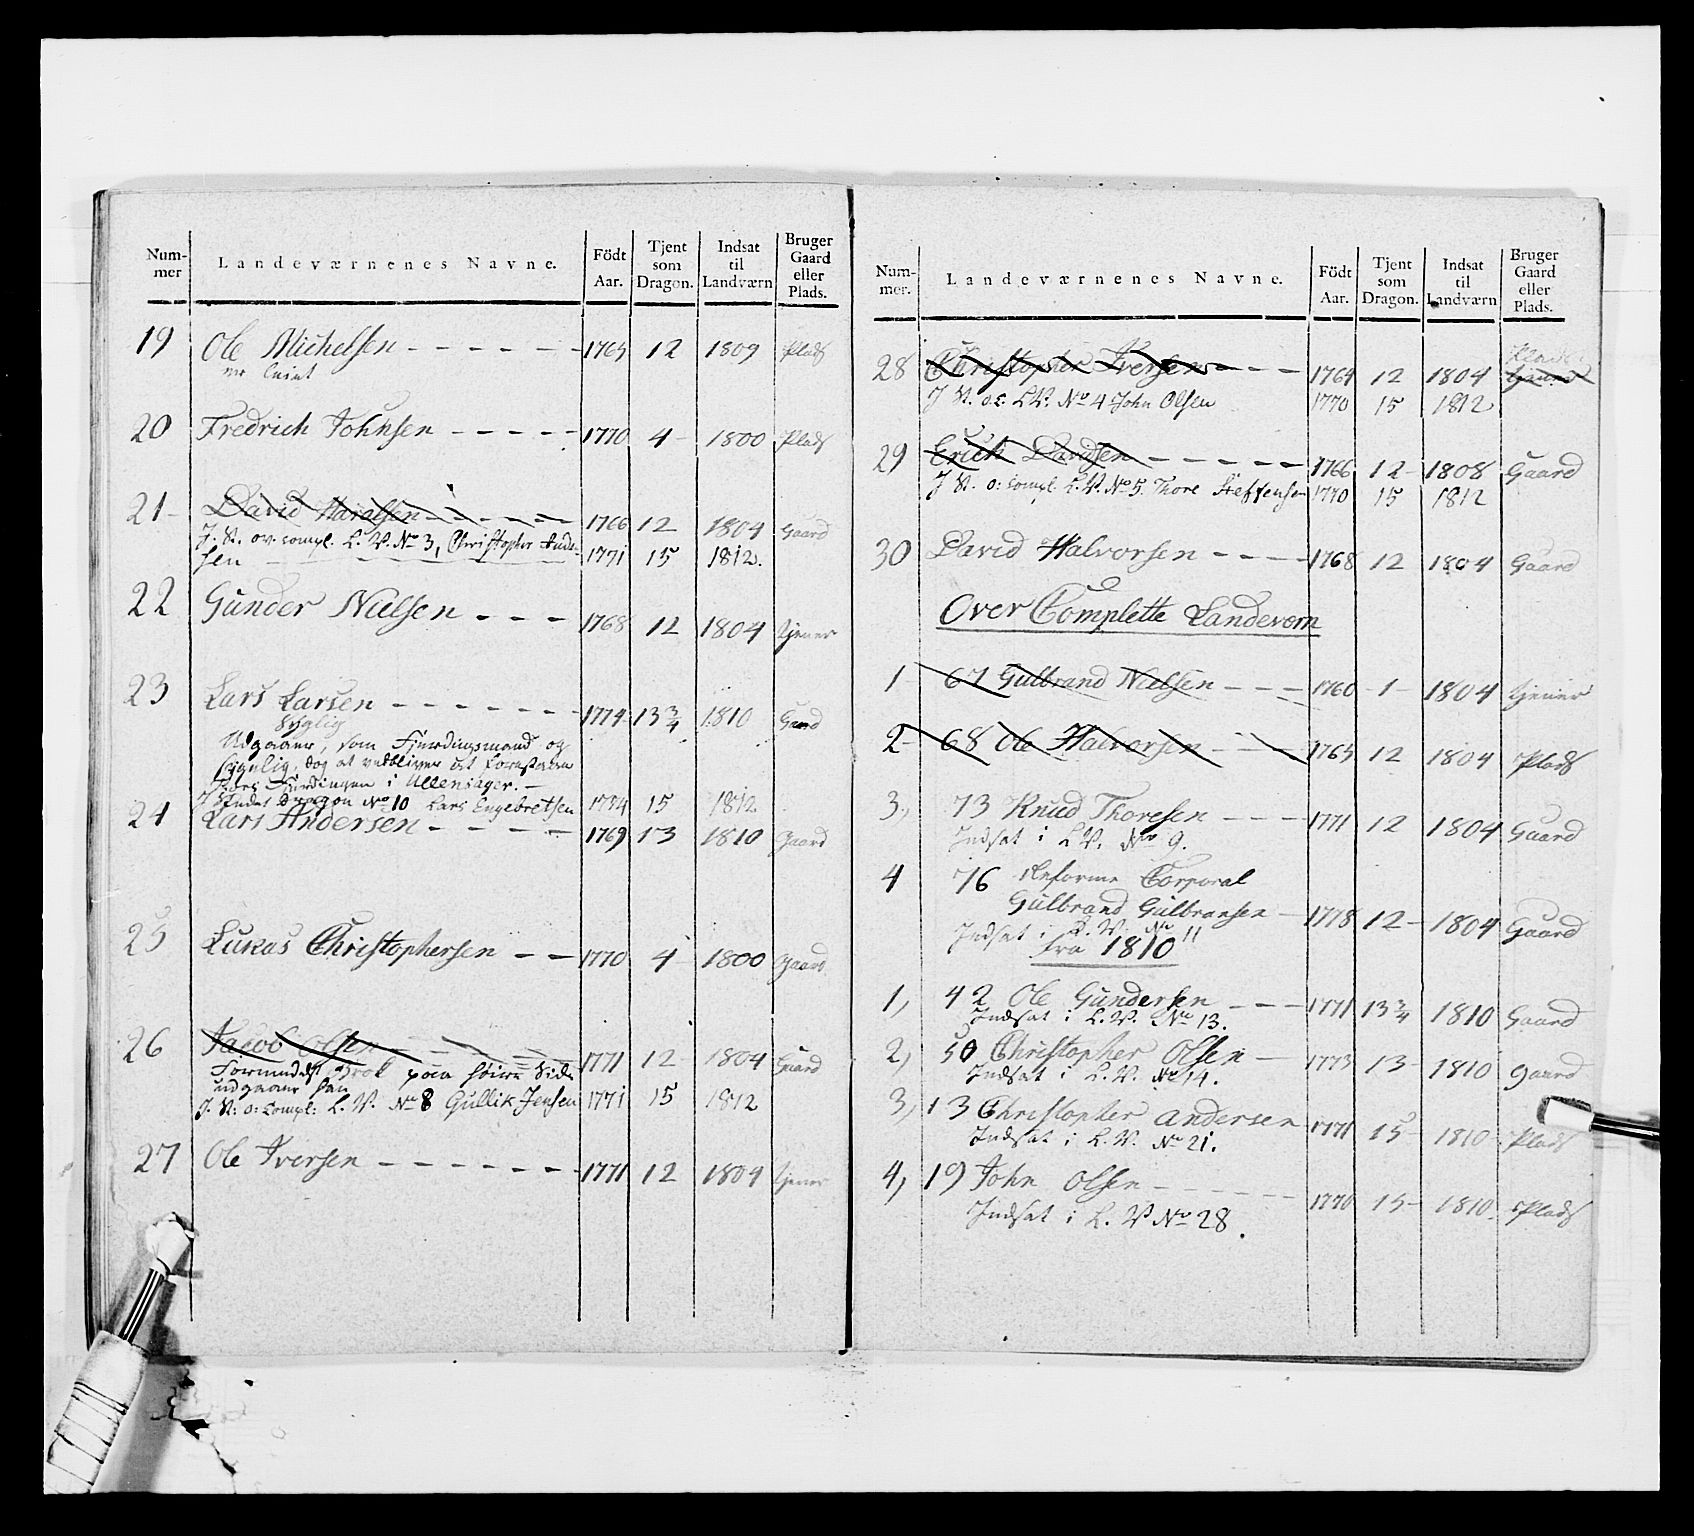 Num-mer | Landeværnenes Navne. | Födt Aar. | Tjent som Dragon. | Indsat til Landværn | Bruger Gaard eller Plads.
19 Ole Michelsen - - - - - - 1765 12 1809 Plads
20 Fredrich Johnsen - - - - - 1770 4 - 1800 Plads
21 - David Haralsen - - - - 1766 12 1804 Gaard
J. St. ov. compl. L. V. No 3, Christopher Ande-
sen 1771 15 1812.
22 Gunder Nielsen - - - 1768 12 1804 tjener
23 Lars Larsen - - - - - - - 1774 13 3/4 1810 Gaard
syglig
Udgaaer, som Fierdingsmand og
sygelig, dog at vedbliver at forestaae
Fierdingen i Ullensager. -
J St. Dragon No 10 Lars Engebretsen 1774 15 1812
24 Lars Andersen - - - - - 1769 13 1810 Gaard
25 Lukas Christophersen - - 1770 4 1800 gaard
26 Jacob Olsen 1771 12 1804 Gaard
Formedelst Brok paa høire Side
udgaaer han
J. St: o: compl: L. V. No 8 Gullik Jensen 1771 15 1812
27 Ole Iversen - - - - - - - 1771 12 1804 tjener
Num-mer. | Landeværnenes Navne. | Födt Aar. | Tjent som Dragon. | Indsat til Landværn | Bruger Gaard eller Plads.
Plads
28 Christopher Iversen - - - 1764 12 1804 Gaard
J St. o.c. LV. No 4 John Olsen 1770 15 1812
29 Erich Davidsen - - - - - 1766 12 - 1808 Gaard
J St. o: compl. L. V. No 5. Thore Steffensen 1770 15 1812
30 David Halvorsen - - - - 1768 12 1804 Gaard
Over Complette Landevern
1 67 Gulbrand Nielsen - - - 1760 - 1 - 1804 tjener
2 - 68 Ole Halvorsen - - - 1765 12 1804 Plads
3, 73 Knud Thoresen - - - 1771 12 1804 Gaard
Indsat i L V. No 9.
4 76 Reforme Corporal
Gulbrand Gulbransen - 1778 12 - 1804 Gaard
Indsat i L. V. No 11
Fra 1810
1, 42 Ole Gundersen - - - 1771 13 3/4 1810 Gaard
Indsat i L. V. No 13.
2, 50 Christopher Olsen - 1773 13 - 1810 gaard
Indsat i L. V. No 14.
3, 13 Christopher Andersen 1771 15 - 1810 - Plads
Indsat i L. V. No 21.
4, 19 John Olsen - - - - - - 1770 15 - 1810. Plads
Indsat i L. V No 28.